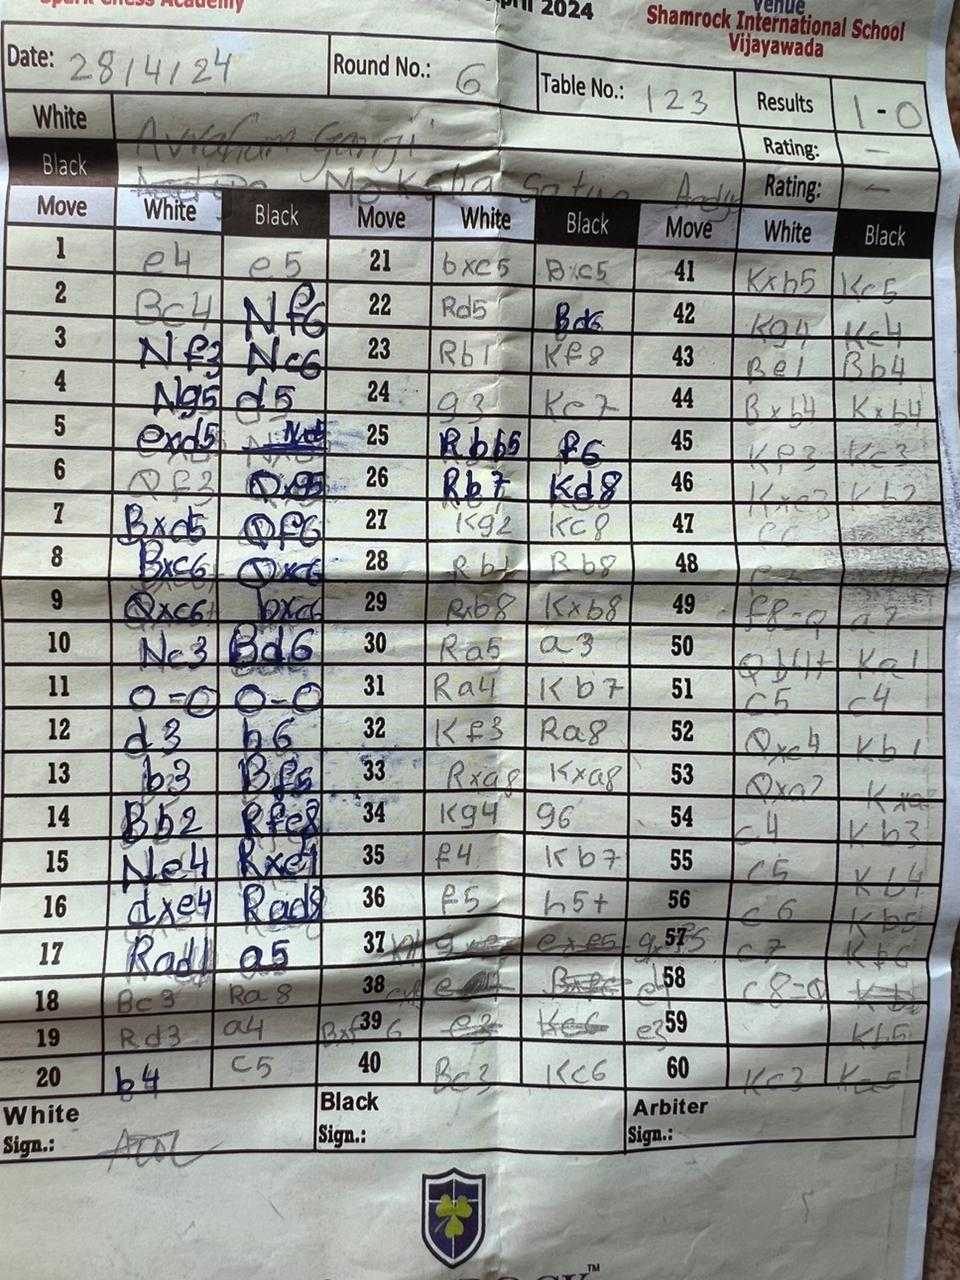 Spark Chess Academy
April 2024
Venue
Shamrock International School
Vijayawada
Date: 28/4/24 Round No.: 6 Table No.: 123 Results 1-0
White Rating: -
Black Moksha Rating: -
Move White Black Move White Black Move White Black
1 e4 e5 21 bxc5 Bxc5 41 Kxb5 Kc5
2 Bc4 Nf6 22 Rd5 Bd6 42 Kg4 Kc4
3 Nf3 Nc6 23 Rb1 Kf8 43 Be1 Bb4
4 Ng5 d5 24 g3 Ke7 44 Bxb4 Kxb4
5 exd5 25 Rbb5 f6 45 Kf3 Kc3
6 Qf3 Qxg5 26 Rb7 Kd8 46 Kxe3 Kb2
7 Bxd5 Qf6 27 Kg2 Kc8 47
8 Bxc6 Qxc6 28 Rb1 Bb8 48
9 Qxc6+ bxc6 29 Rxb8 Kxb8 49 f8=q a2
10 Nc3 Bd6 30 Ra5 a3 50 Qb4+ Ka1
11 0=0 0-0 31 Ra4 Kb7 51 c5 c4
12 d3 h6 32 Kf3 Ra8 52 Qxc4 Kb1
13 b3 Bf5 33 Rxa8 Kxa8 53 Qxa2
14 Bb2 Rfe8 34 Kg4 g6 54 c4 Kb3
15 Ne4 Rxe4 35 f4 Kb7 55 c5 Kb4
16 dxe4 Rad8 36 f5 h5+ 56 c6 Kb5
17 Rad1 a5 37 57 c7 Kb6
18 Bc3 Ra8 38 e4 58 c8=q
19 Rd3 a4 39 e3 59 Kb5
20 b4 c5 40 Bc3 Kc6 60 Kc3
White Black Arbiter
Sign.: Sign.: Sign.:
TM